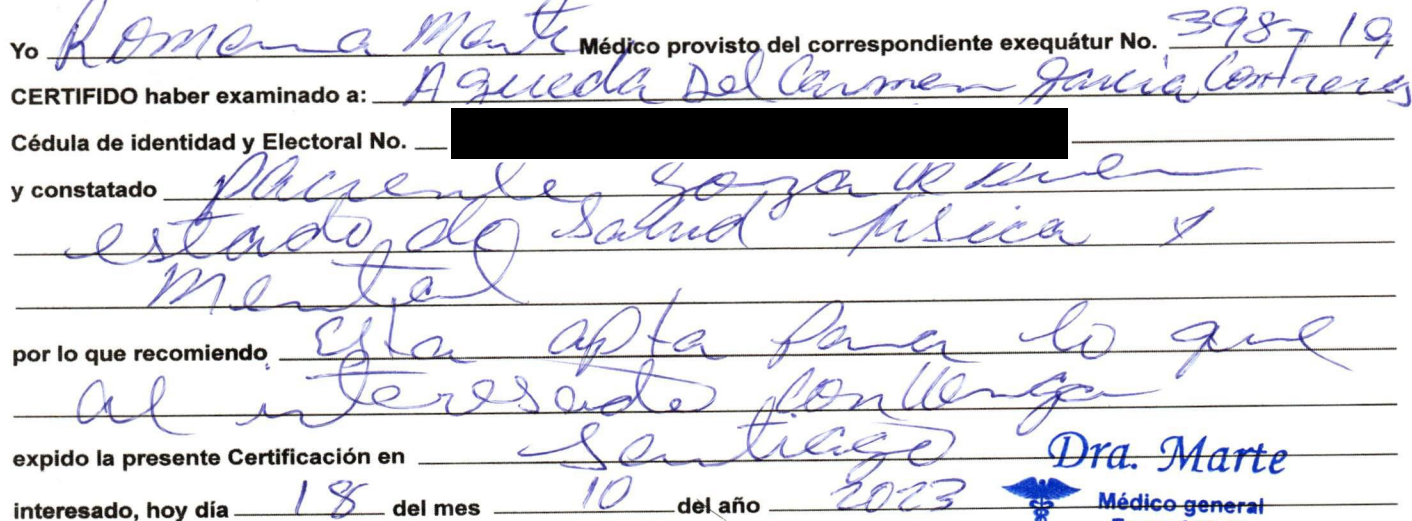 Yo Romana Marte Médico provisto del correspondiente exequátur No. 398-19
CERTIFIDO haber examinado a: Agueda Del Carmen Garcia Contreras
Cédula de identidad y Electoral No.
y constatado paciente goza de buen
estado de salud fisica y
mental
por lo que recomiendo Esta apta para lo que
al interesado convenga
expido la presente Certificación en Santiago
Dra. Marte
interesado, hoy día 18 del mes 10 del año 2023
Médico general